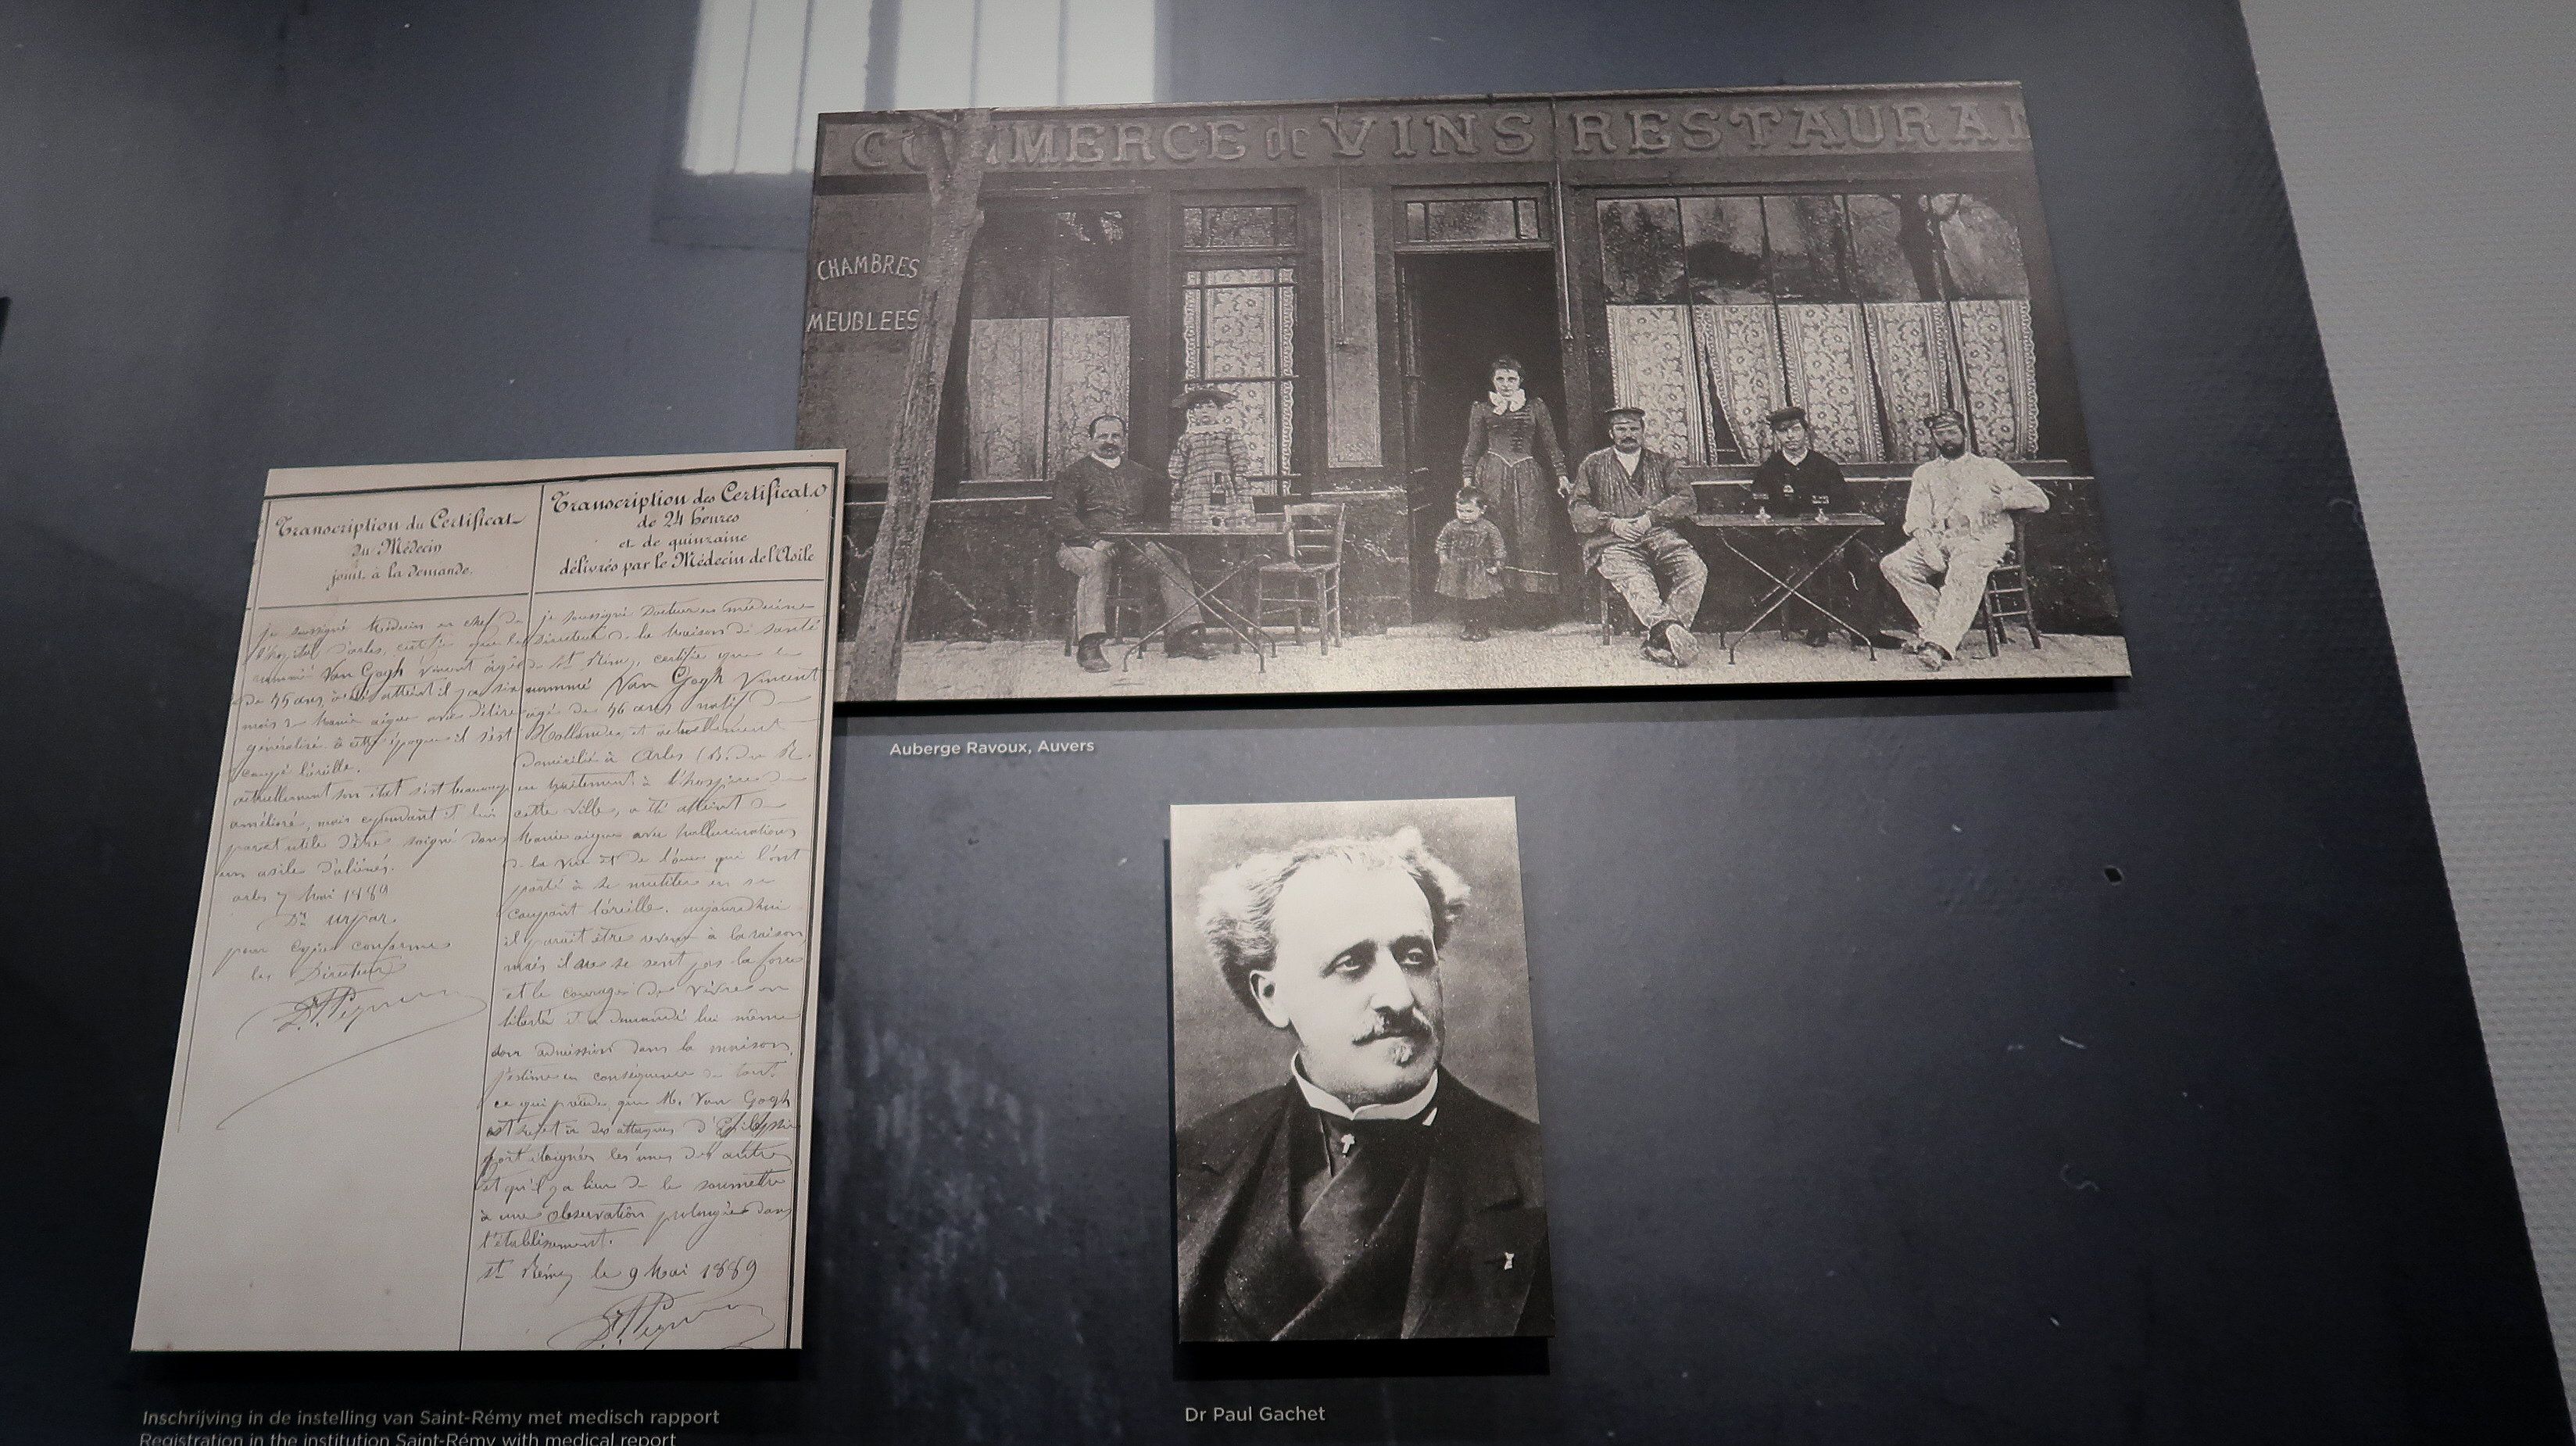 COMMERCE de VINS RESTAURA
CHAMBRES
MEUBLEES
Auberge Ravoux, Auvers
Transcription du Certificat
du Médecin
joint à la demande.
je soussigné Médecin en chef de
l'hôpital d'arles, certifie que le
nommé Van Gogh Vincent âgé
de ans, a été atteint il y a six
mois de Manie aigue avec délire
généralisé. à cette époque il s'est
coupé l'oreille.
actuellement son état s'est beaucoup
amélioré, mais cependant il lui
parait utile d'être soigné dans
un asile d'aliénés.
arles 7 Mai 1889
Dr urpar.
pour Copie conforme
le Directeur
Transcription des Certificats
de 24 heures
et de quinzaine
délivrés par le Médecin de l'Asile
je soussigné Docteur en médecine
Directeur de la Maison de santé
de St Rémy, certifie que le
nommé Van Gogh Vincent
agé de 36 ans natif de
Hollande, et actuellement
domicilié à Arles (B. du R.
en traitement à l'hospice de
cette ville, a été atteint de
Manie aigue avec hallucinations
de la vue et de l'ouie qui l'ont
porté à se mutiler en se
coupant l'oreille. aujourd'hui
il parait être revenu à la raison,
mais il ne se sent pas la force
et le courage de vivre en
liberté et a demandé lui même
son admission dans la maison.
j'estime en conséquence de tout
ce qui précède, que M. Van Gogh
est sujet à des attaques d'Epilepsie
fort éloignées les unes des autres
et qu'il y a lieu de le soumettre
à une observation prolongée dans
l'établissement.
St Rémy le 9 Mai 1889
Inschrijving in de instelling van Saint-Rémy met medisch rapport
Registration in the institution Saint-Rémy with medical report
Dr Paul Gachet